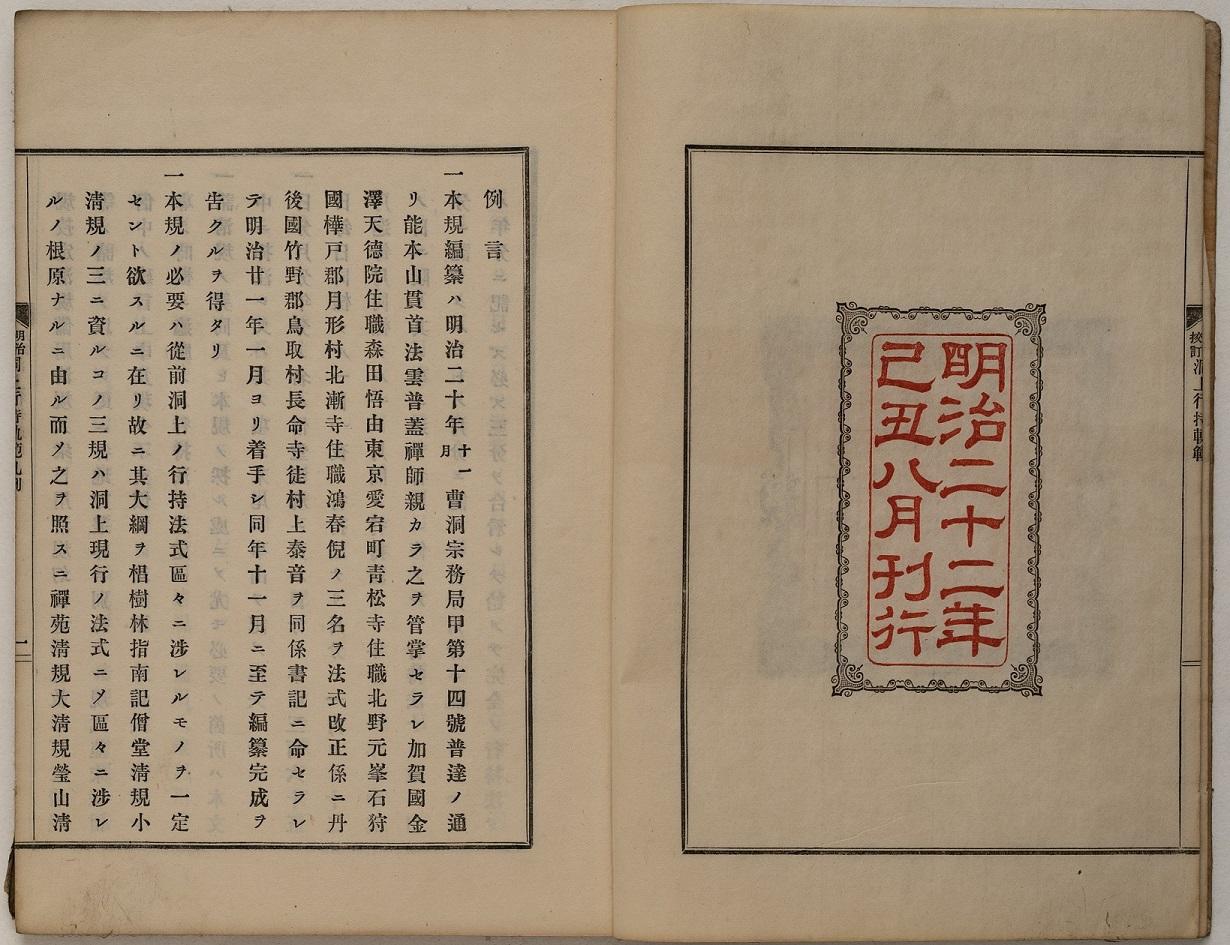 校訂洞上行持軌範
明治二十二年
己丑八月刊行
例言
一本規編纂ハ明治二十年十一月曹洞宗務局甲第十四號普達ノ通
リ能本山貫首法雲普蓋禪師親カラ之ヲ管掌セラレ加賀國金
澤天德院住職森田悟由東京愛宕町靑松寺住職北野元峯石狩
國樺戸郡月形村北漸寺住職鴻春倪ノ三名ヲ法式改正係ニ丹
後國竹野郡鳥取村長命寺徒村上泰音ヲ同係書記ニ命セラレ
テ明治廿一年一月ヨリ着手シ同年十一月ニ至テ編纂完成ヲ
告クルヲ得タリ
一本規ノ必要ハ從前洞上ノ行持法式區々ニ涉レルモノヲ一定
セント欲スルニ在リ故ニ其大綱ヲ椙樹林指南記僧堂淸規小
淸規ノ三ニ資ルコノ三規ハ洞上現行ノ法式ニメ區々ニ涉レ
ルノ根原ナルニ由ル而メ之ヲ照スニ禪苑淸規大淸規瑩山淸
一